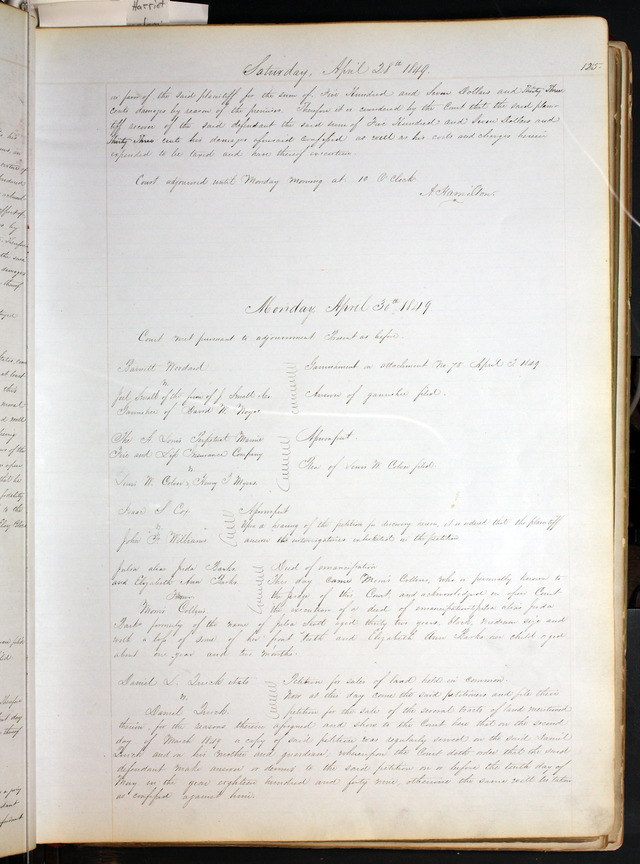 Harriet
Saturday, April 28th 1849.
125
in favor of the said plaintiff for the sum of Five Hundred and Seven Dollars and Thirty Three
cents damages by reason of the premises. Therefore it is considered by the Court that the said plain-
tiff recover of the said defendant the said sum of Five Hundred and Seven Dollars and
Thirty Three cents his damages aforesaid assessed as well as his costs and charges herein
expended to be taxed and have thereof execution.
Court adjourned until Monday morning at 10 O'Clock
A Hamilton
Monday, April 30th 1849.
Court met pursuant to adjournment Present as before.
Barnett Woodard
vs
Joel Smith of the firm of J. Smith & Co
Garnishee of David W. Noyes
Garnishment on attachment No 75 April 3 1849
Answer of garnishee filed.
The St Louis Perpetual Marine
Fire and Life Insurance Company
vs
Louis W. Cohen & Henry T. Myers
Assumpsit.
Plea of Louis W. Cohen filed
Isaac S. Cox
vs
John F. Williams
Assumpsit
Upon a hearing of the petition for discovery herein, it is ordered that the plaintiff
answer the interrogatories exhibited in the petition
Julia alias Juda Banks
and Elizabeth Ann Banks
from
Morris Collins
Deed of emancipation
This day came Morris Collins, who is personally known to
the judge of this Court, and acknowledged in open Court
the execution of a deed of emancipation to Julia alias Juda
Banks formerly of the name of Julia Scott aged thirty two years, black, medium size and
with a loss of some of her front teeth and Elizabeth Ann Banks her child aged
about one year and two months.
Daniel L. Quick et als
vs
Daniel Quick
Petition for sales of land held in common.
Now at this day come the said petitioners and file their
petition for the sale of the several tracts of land mentioned
therein, for the reasons therein assigned and show to the Court here that on the second
day of March 1849 a copy of said petition was regularly served on the said Daniel
Quick and on his mother and guardian, whereupon the Court doth order that the said
defendant make answer or demur to the said petition on or before the tenth day of
May in the year eighteen hundred and forty nine, otherwise the same will be taken
as confessed against him.